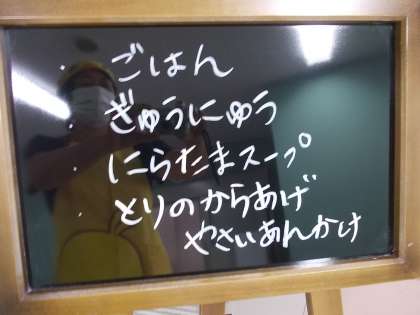 ・ごはん
・ぎゅうにゅう
・にらたまスープ
・とりのからあげ
やさいあんかけ